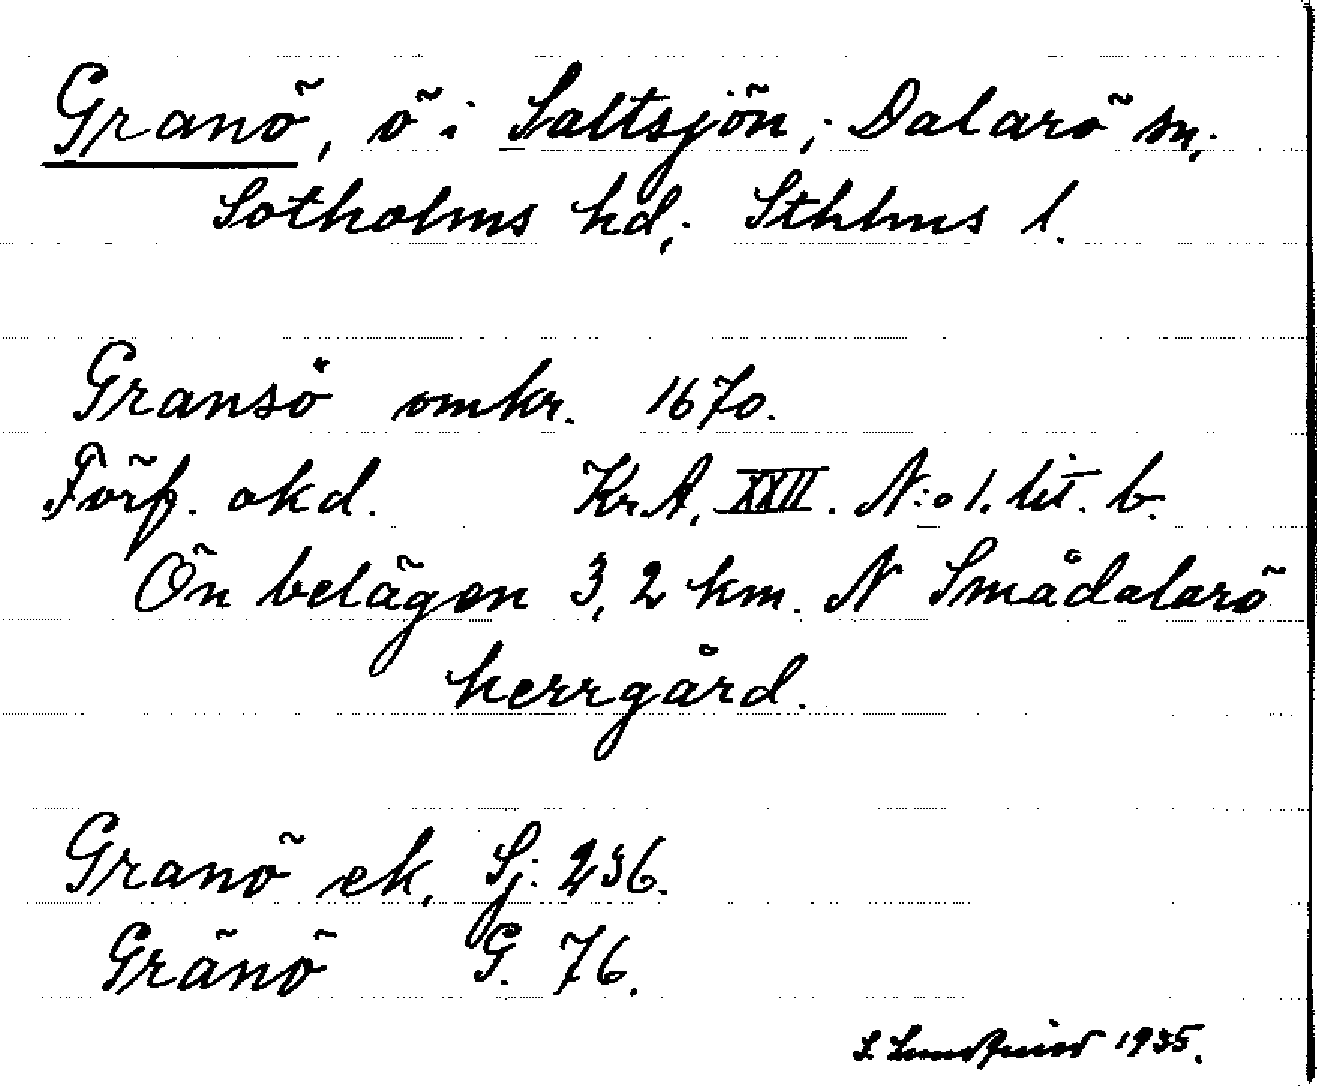 Granö, ö i Saltsjön, Dalarö sn,
Sotholms hd, Sthlms l.
Gransö omkr. 1670.
Förf. okd. Kr.A. XXII. N:o 1. lit. b.
Ön belägen 3,2 km. N Smådalarö
herrgård.
Granö ek. Sj. 236.
Gränö G. 76.
S. 1935.